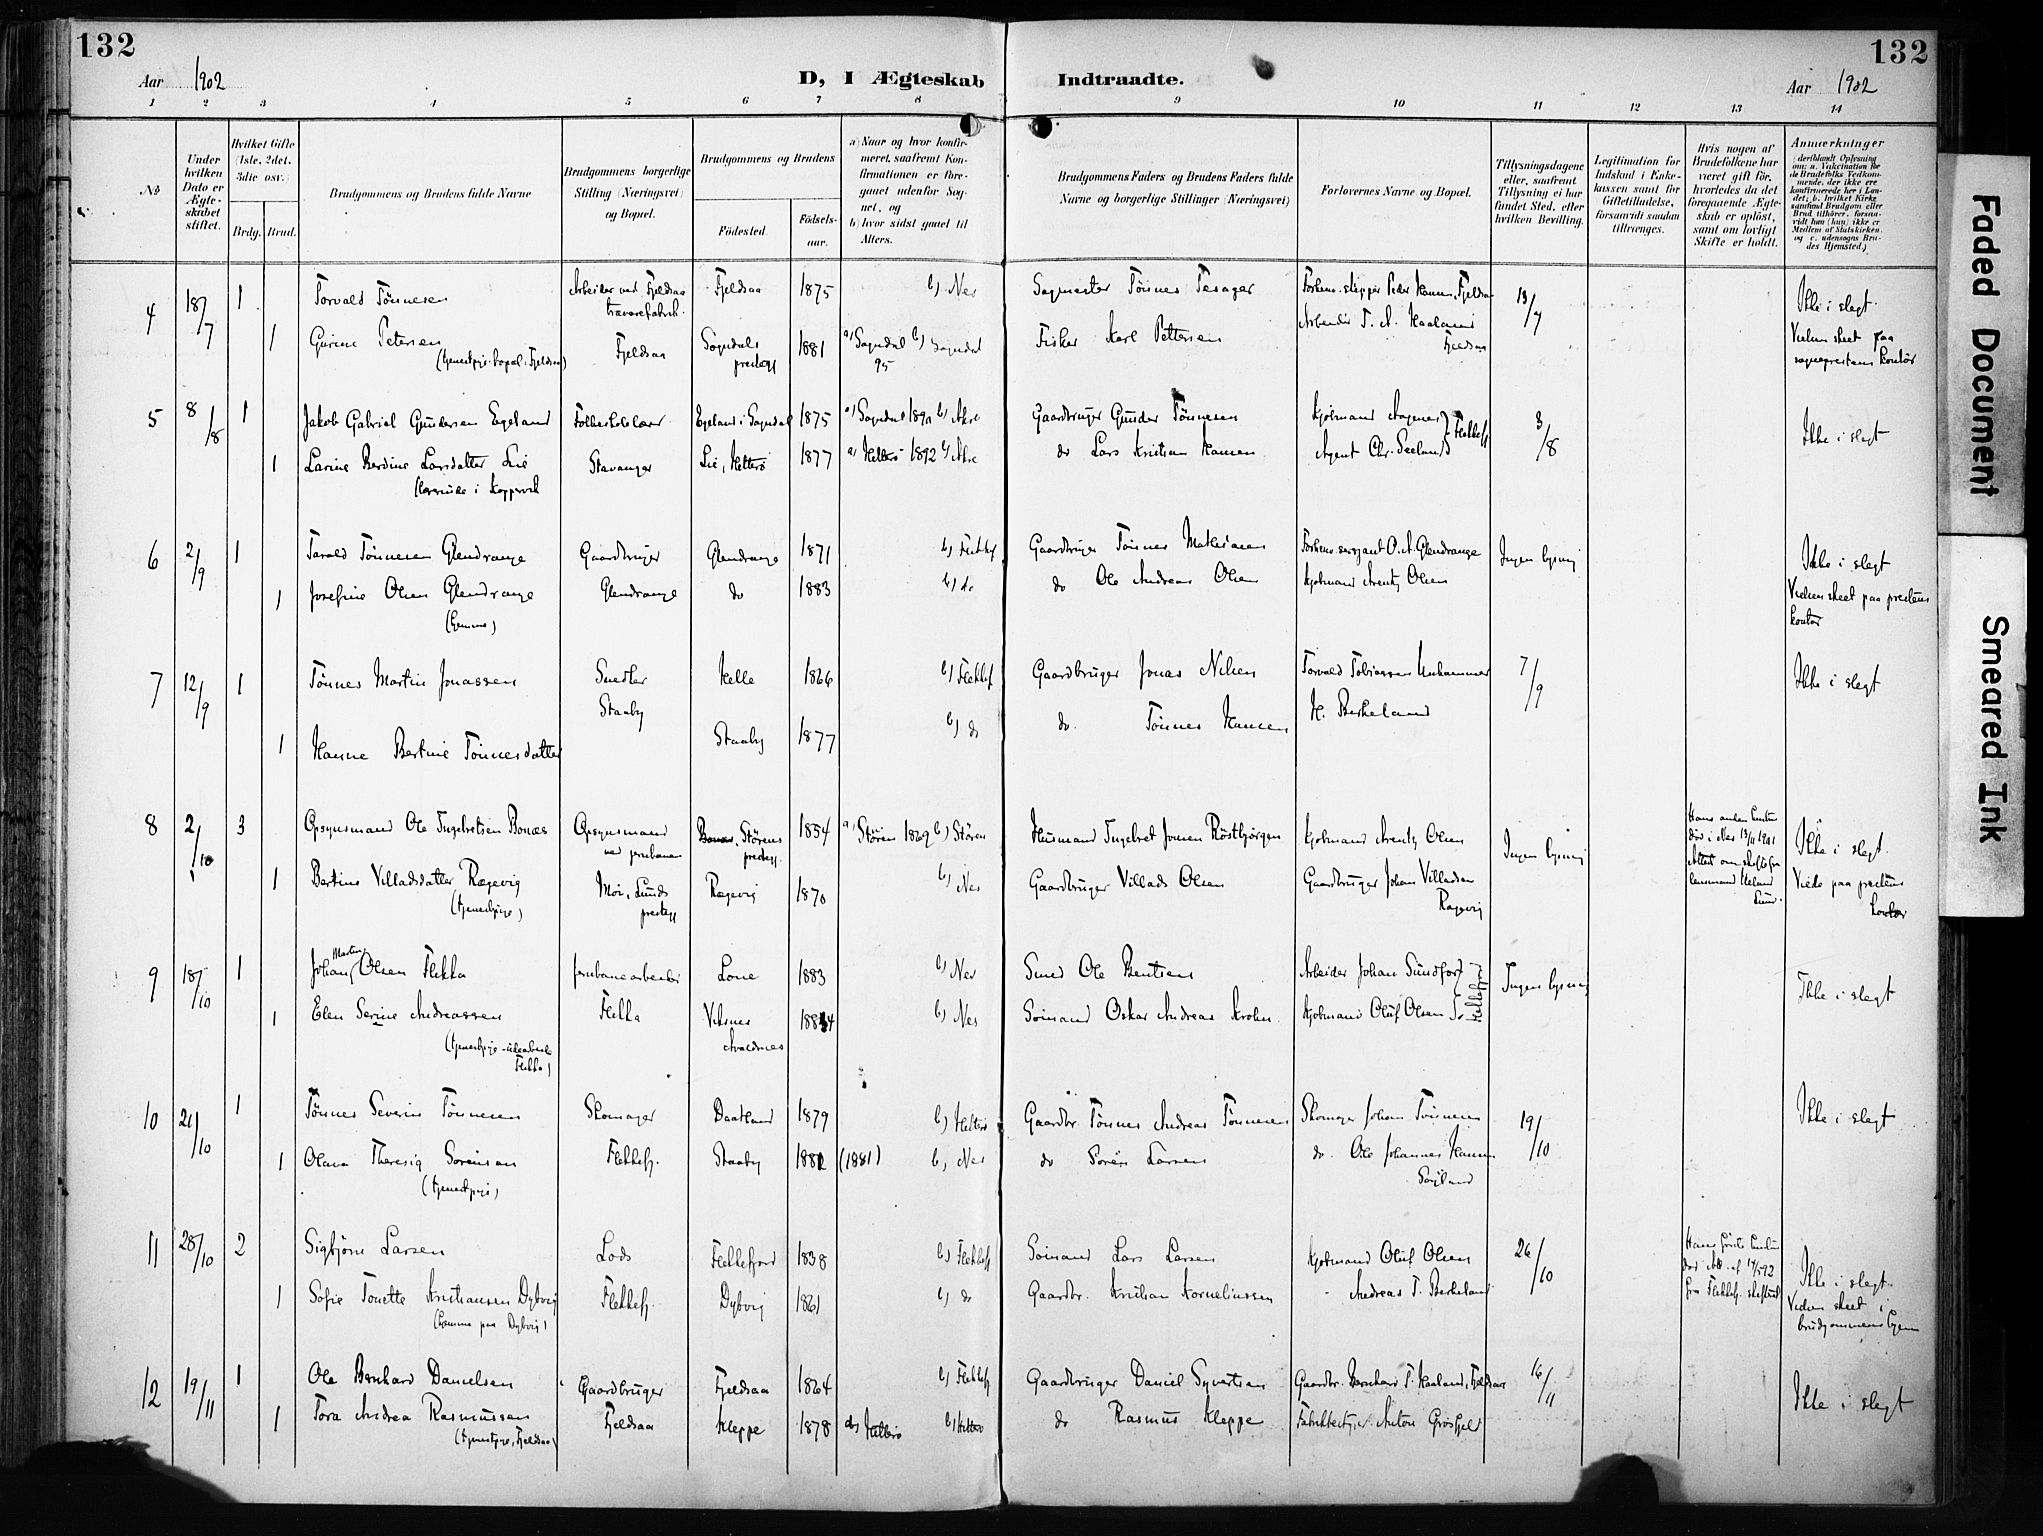 132
132
Aar 1902
D, I Ægteskab Indtraadte.
Aar 1902
1 2 3 4 5 6 7 8 9 10 11 12 13 14
No
Under hvilken Dato er Ægteskabet stiftet.
Hvilket Gifte (1ste, 2det, 3die osv.)
Brdg. Brud.
Brudgommens og Brudens fulde Navne
Brudgommens borgerlige Stilling (Næringsvei) og Bopæl.
Brudgommens og Brudens
Fødested.
Fødselsaar.
a) Naar og hvor konfirmeret, saafremt Konfirmationen er foregaaet udenfor Sognet, og
b) hvor sidst gaaet til Alters.
Brudgommens Faders og Brudens Faders fulde Navne og borgerlige Stillinger (Næringsvei)
Forlovernes Navne og Bopæl.
Tillysningsdagene eller, saafremt Tillysning ei har fundet Sted, efter hvilken Bevilling.
Legitimation for Indskud i Enkekassen samt for Giftetilladelse, forsaavidt saadan tiltrænges.
Hvis nogen af Brudefolkene har været gift før, hvorledes da det foregaaende Ægteskab er opløst, samt om lovligt Skifte er holdt.
Anmerkninger
4 18/7 1 Torvald Tønnesen Arbeider ved Fjeldsaa trævarefabrik Fjeldsaa 1875 b) Nes Sagmester Tønnes Tesager 13/7 Ikke i slegt.
1 Gurine Petersen Fjeldsaa Sogndals prestegj 1881 a) Sogndal 95 b) Sogndal Fisker Karl Pettersen Arbeider T. A. Haaland Fjeldsaa Vielsen skeet paa sogneprestens kontor
5 8/8 1 Jakob Gabriel Gundersen Egeland Folkeskolelærer Egeland i Sogndal 1875 b) Akre Gaardbruger Gunder Tønnesen Kjøbmand Aagenes Flekkefj 3/8 Ikke i slegt
1 Larine Berdine Larsdatter Lie Stavanger Lie, Hitterø 1877 a) Hitterø 1892 b) Akre do Lars Kristian Hansen Agent Chr. Seeland
6 2/9 1 Tarald Tønnesen Glendrange Gaardbruger Glendrange 1871 b) Flekkefj Gaardbruger Tønnes Mathiasen Forhenv. sergeant O. A. Glendrange Ingen lysning Ikke i slegt
1 Josefine Olsen Glendrange (hjemme) Glendrange do 1883 b) do do Ole Andreas Olsen Kjøbmand Arentz Olsen Vielsen skeet paa prestens kontor
7 12/9 1 Tønnes Martin Jonassen Snedker Staaby Helle 1866 b) Flekkefj Gaardbruger Jonas Nilsen Torvald Tobiassen Unhammer 7/9 Ikke i slegt
1 Hanne Bertine Tønnesdatter Staaby 1877 b) do do Tønnes Hansen H. Berkeland
8 2/10 3 Opsynsmand Ole Ingebretsen Bonæs Opsynsmand ved jernbanen Bonæs, Störens prestegj. 1854 a) Støren 1869 b) Støren Husmand Ingebret Jonsen Röstbjørgen Kjøbmand Arentz Olsen Ingen lysning Ikke i slegt.
1 Bertine Villadsdatter Rægevig (tjenestpige) Moi, Lunds prestegj Rægevig 1870 b) Nes Gaardbruger Villads Olsen Gaardbruger Johan Villadsen Rægevig Viede paa prestens kontor
9 18/10 1 Johan Martin Olsen Flikka Jernbanearbeider Lone 1883 b) Nes Smed Ole Bentsen Arbeider Johan Sundfor Ingen lysning Ikke i slegt
1 Elen Serine Andreassen Flikka Viksnes Avaldsnes 1884 b) Nes Sömand Oskar Andreas Krohn Kjøbmand Oluf Olsen Flekkefjord
10 21/10 1 Tönnes Severin Tönnesen Skomager Daatland 1879 b) Hitterø Gaardbr. Tønnes Andreas Tönnesen Skomager Johan Tönnesen 19/10 Ikke i slegt
1 Olava Theresia Sörensen (tjenestpige) Flekkefj. Staaby 1882 (1881) b) Nes do Sören Larsen do. Ole Johannes Hansen Söyland
11 28/10 2 Sigbjørn Larsen Lods Flekkefjord 1838 b) Flekkefj Sömand Lars Larsen Kjøbmand Oluf Olsen 26/10 Ikke i slegt.
1 Sofie Tonette Kristiansen Dybvig (hjemme paa Dybvig) Flekkefj. Dybvig 1861 b) do Gaardbr. Kristian Korneliussen Andreas T. Berkeland Vielsen skeet i brudgommens hjem
12 19/11 1 Ole Bernhard Danielsen Gaardbruger Fjeldsaa 1864 b) Flekkefj Gaardbruger Daniel Syvertsen Gaardbr. Bernhard T. Haaland, Fjeldsaa 16/11 Ikke i slegt
1 Tora Andrea Rasmussen (tjenestpige, Fjeldsaa) Fjeldsaa Kleppe 1878 a) Hitterø b) Hitterø do Rasmus Kleppe Anton Grösfjeld
Faded Document
Smeared Ink